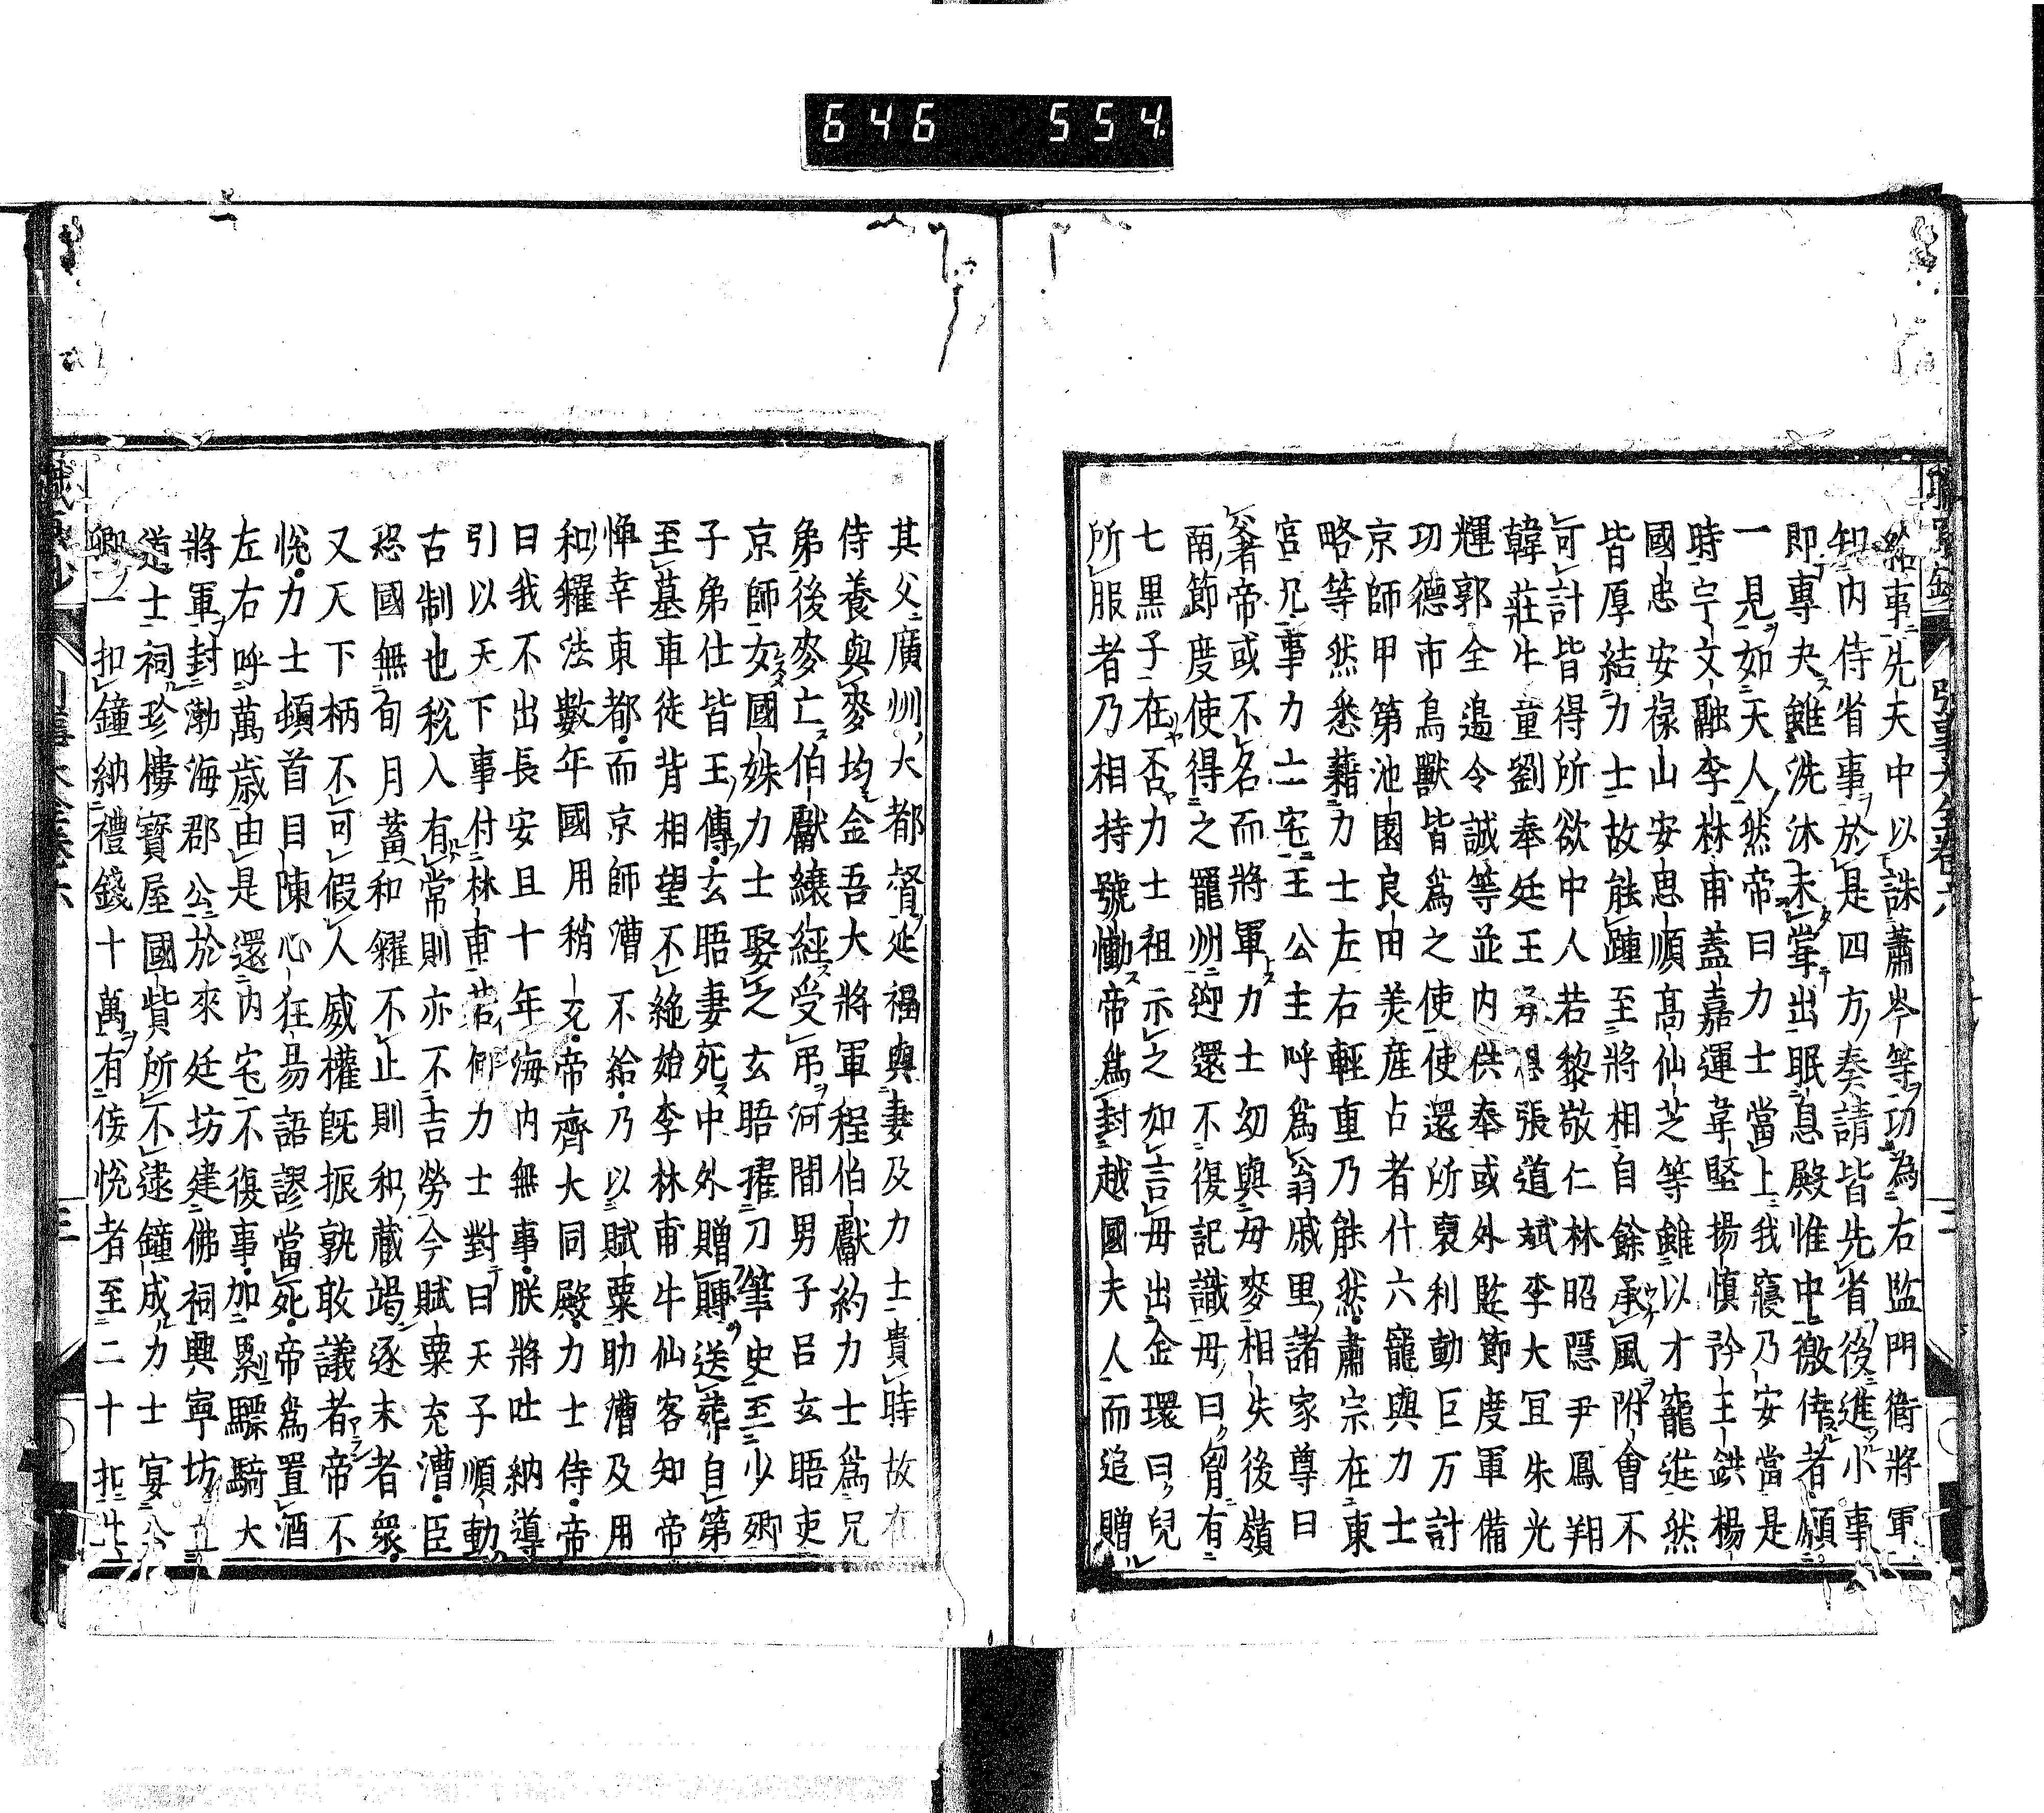 646 554
給事先夫中以誅蕭岑等功為右監門衛將軍
知内侍省事於是四方奏請皆先省後進小事
即專夬雖洗沐未甞出眠息殿惟中徼倖者願
一見如天人然帝曰力士當上我寢乃安當是
時宇文融李林甫蓋嘉運韋堅揚慎矜王鉷楊
國忠安禄山安思順髙仙芝等雖以才寵進然
皆厚結力士故能踵至將相自餘承風附會不
可計皆得所欲中人若黎敬仁林昭隱尹鳳翔
韓莊牛童劉奉廷王承恩張道斌李大冝朱光
輝郭全邉令誠等並内供奉或外監節度軍備
功德市鳥獸皆爲之使使還所裒利動巨万計
京師甲第池園良田美産占者什六寵與力士
略等然悉藉力士左右輕重乃能然肅宗在東
宮兄事力士宅王公主呼爲翁戚里諸家尊曰
㸙者帝或不名而將軍力士幼與毋麥相失後嶺
南節度使得之瀧州迎還不復記識毋曰胷有
七黒子在否力士祖示之如言毋出金環曰兒
所服者乃相持號慟帝爲封越國夫人而追贈
其父廣州大都督延福與妻及力士貴時故在
侍養與麥均金吾大將軍程伯獻約力士爲兄
弟後麥亡伯獻縗經受吊河間男子吕玄晤吏
京師女國姝力士娶之玄晤擢刀筆史至少卿
子弟仕皆王傳玄晤妻死中外贈賻送葬自第
至墓車徒背相望不絶始李林甫牛仙客知帝
憚幸東都而京師漕不給乃以賦粟助漕及用
和糴法數年國用稍充帝齊大同殿力士侍帝
日我不出長安且十年海内無事朕將吐納導
引以天下事付林甫若何力士對曰天子順動
古制也稅入有常則亦不吉勞今賦粟充漕臣
恐國無旬月蓄和糴不止則和藏竭逐末者衆
又天下柄不可假人威權旣振孰敢議者帝不
悦力士頓首自陳心狂易語謬當死帝爲置酒
左右呼萬歳由是還内宅不復事加累驃騎大
將軍封渤海郡公於來廷坊建佛祠興寧坊立
道士祠珍樓寳屋國貲所不逮鐘成力士宴公
卿一扣鐘納禮錢十萬有佞悦者至二十扣